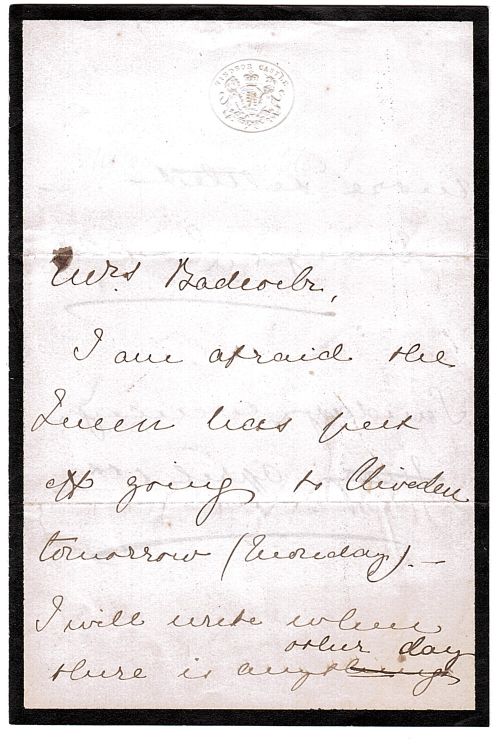 WINDSOR CASTLE
Mrs Badcock,
I am afraid the
Queen has put
off going to Cliveden
tomorrow (Monday). —
I will write when
other day
there is any